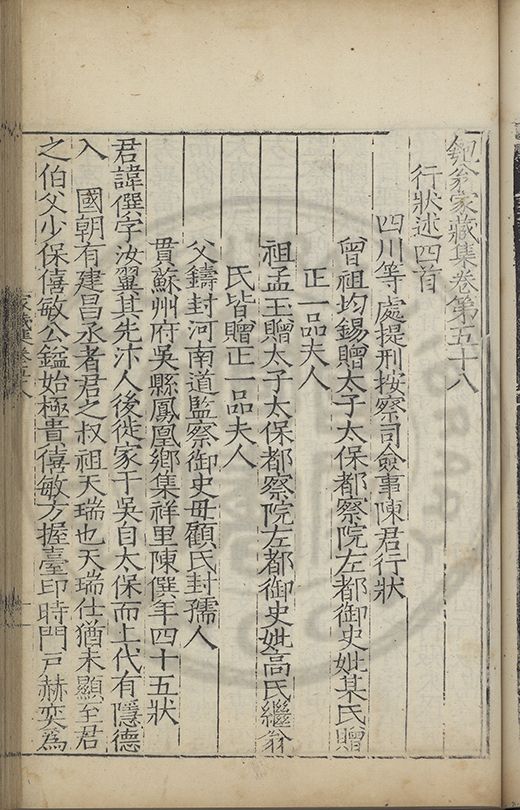 匏翁家藏集卷第五十八
行狀述四首
四川等處提刑按察司僉事陳君行狀
曾祖均錫贈太子太保都察院左都御史妣某氏贈
正一品夫人
祖孟玉贈太子太保都察院左都御史妣高氏繼翁
氏皆贈正一品夫人
父鑄封河南道監察御史毋顧氏封孺人
貫蘇州府吳縣鳳凰鄉集祥里陳僎年四十五狀
君諱僎字汝翼其先汴人後徙家于吳自太保而上代有隱德
入 國朝有建昌丞者君之叔祖天瑞也天瑞仕猶未顯至君
之伯父少保僖敏公鎰始極貴僖敏方握臺印時門戶赫奕爲